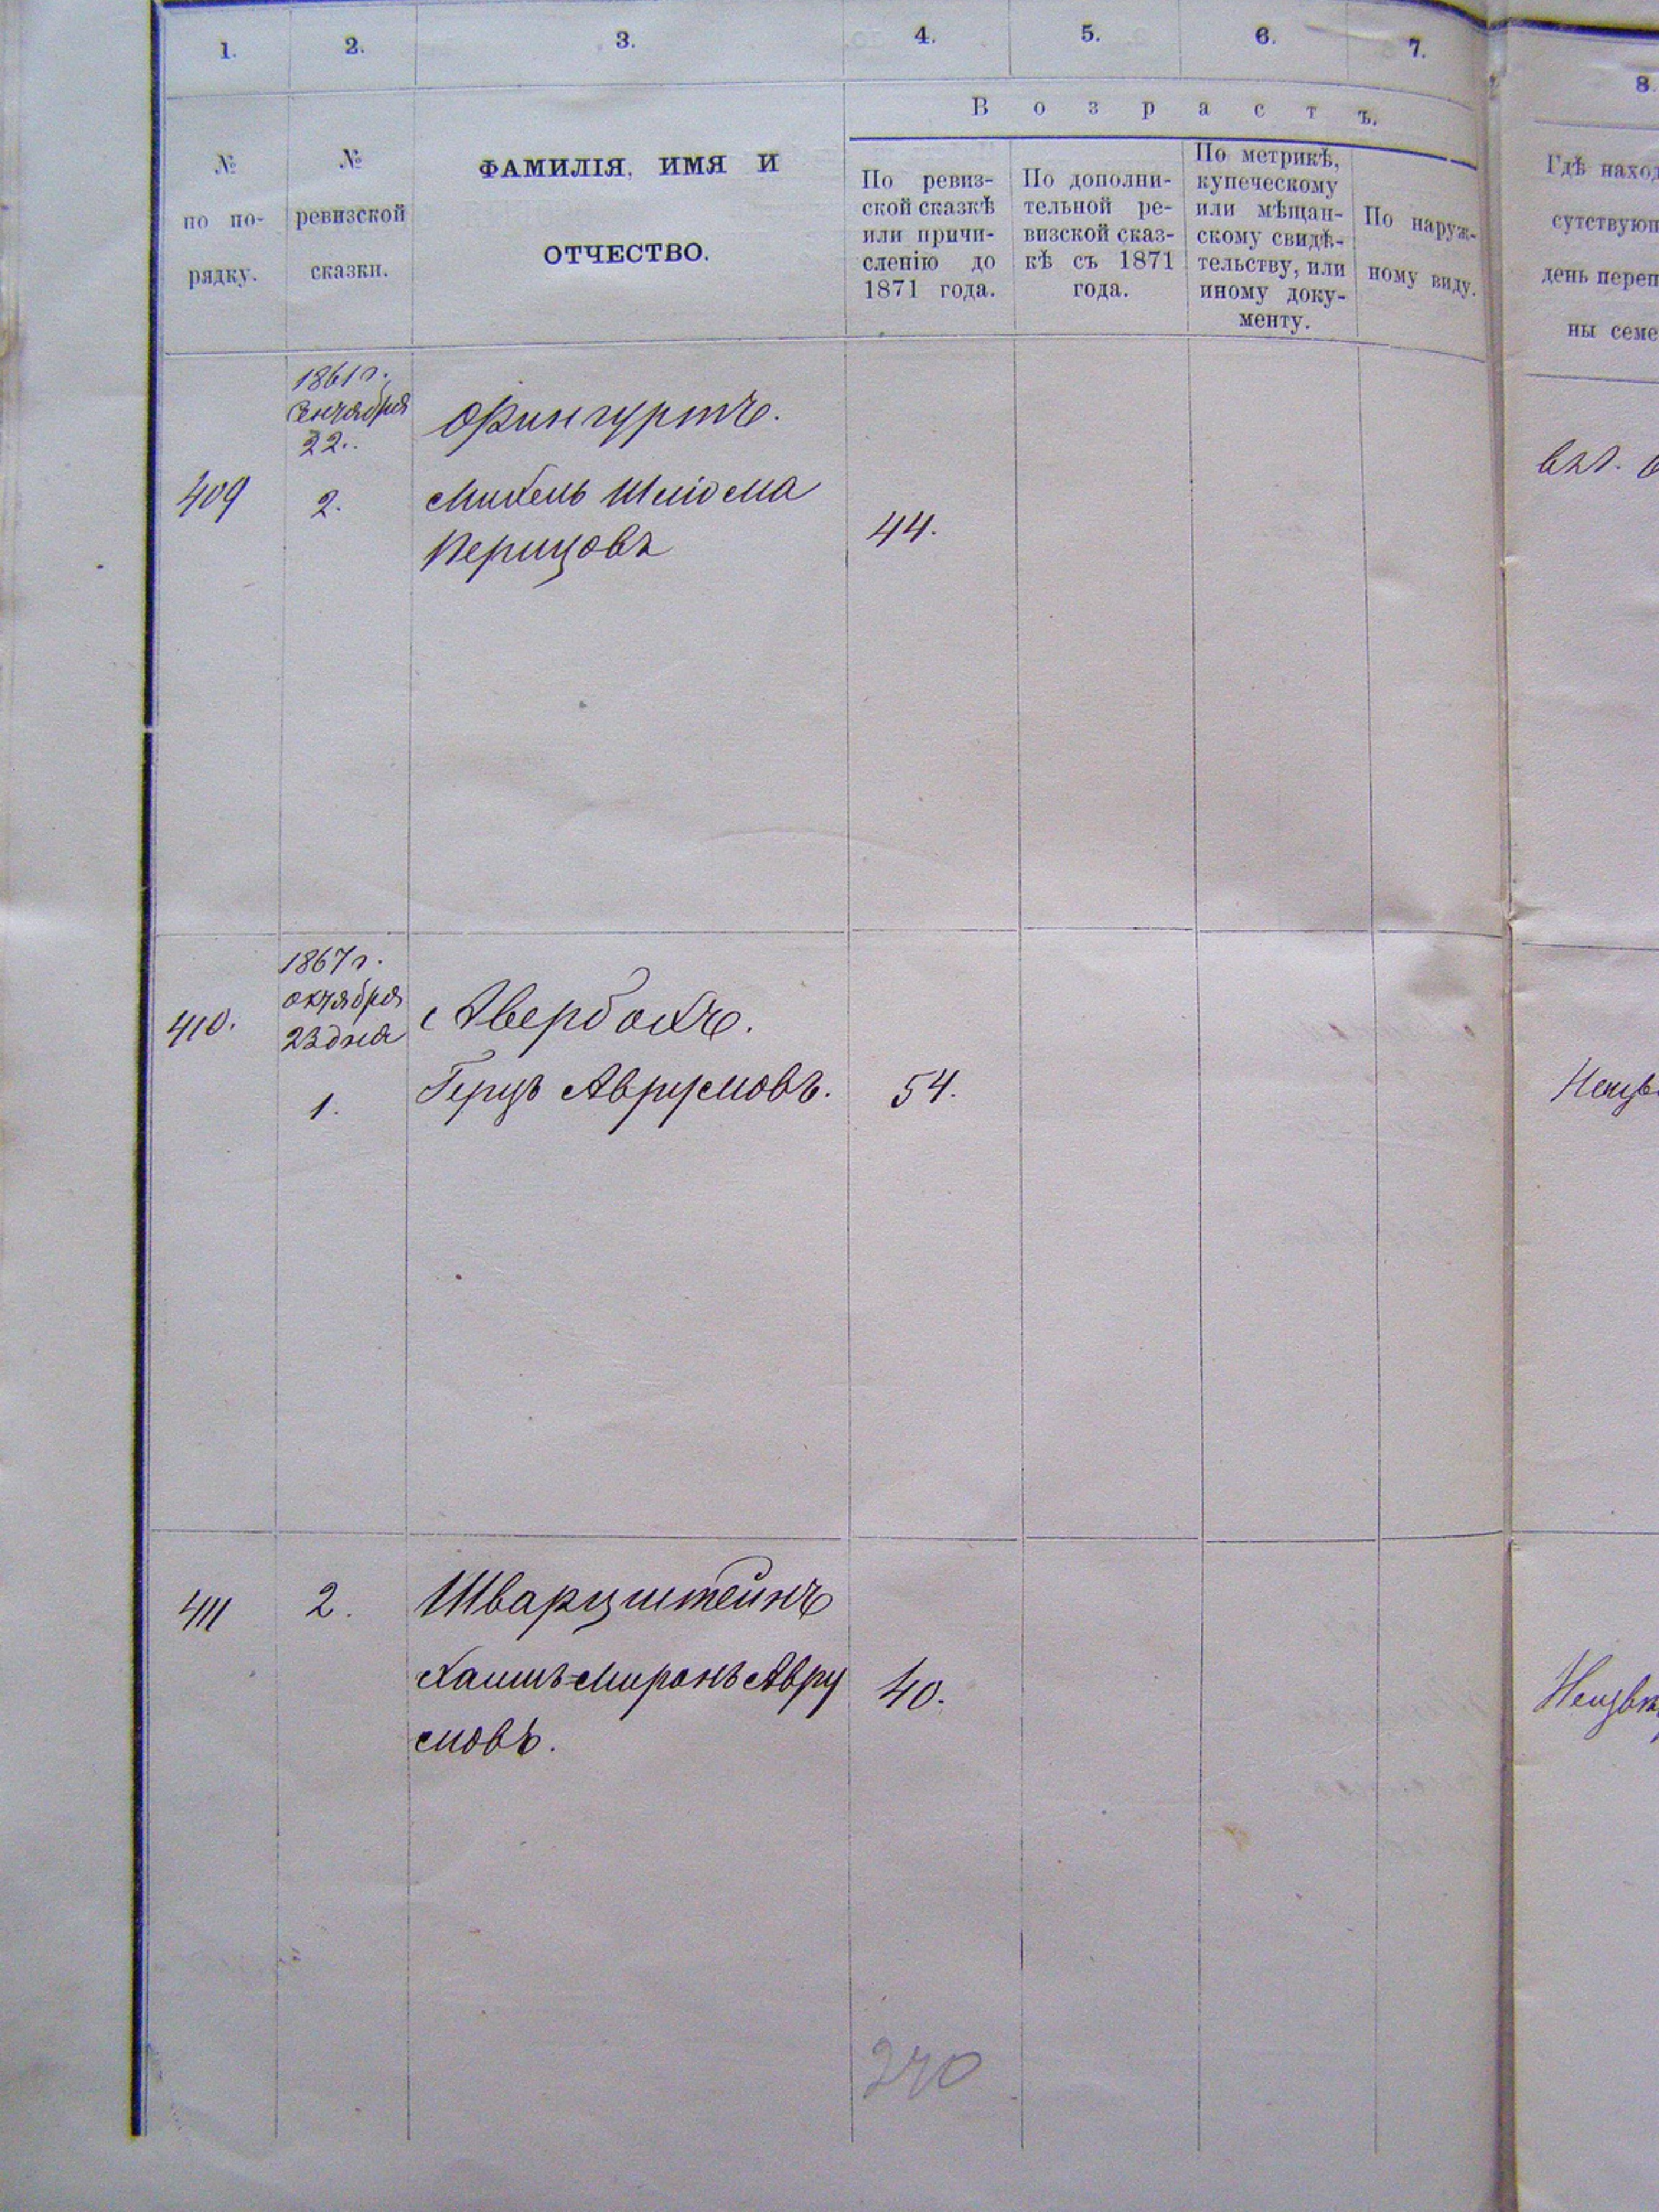 1. 2. 3. 4. 5. 6. 7. 8.
В о з р а с т ъ.
№ по по-рядку.
№ ревизской сказки.
ФАМИЛІЯ, ИМЯ И
ОТЧЕСТВО.
По ревиз-
ской сказкѣ
или причи-
сленію до
1871 года.
По дополни-
тельной ре-
визской сказ-
кѣ съ 1871
года.
По метрикѣ,
купеческому
или мѣщан-
скому свидѣ-
тельству, или
иному доку-
менту.
По наруж-
ному виду.
Гдѣ наход
сутствующ
день переп
ны семе
1861 г.
Сентября
22.
Фингуртъ.
409 2. Михель Шліома 44.
Перицовъ
1867 г.
октября
410. 23 дня Авербохъ.
1. Герцъ Аврумовъ. 54.
411 2. Шварцштейнъ
Хаимъ=Миронъ Авру 40.
мовъ.
270